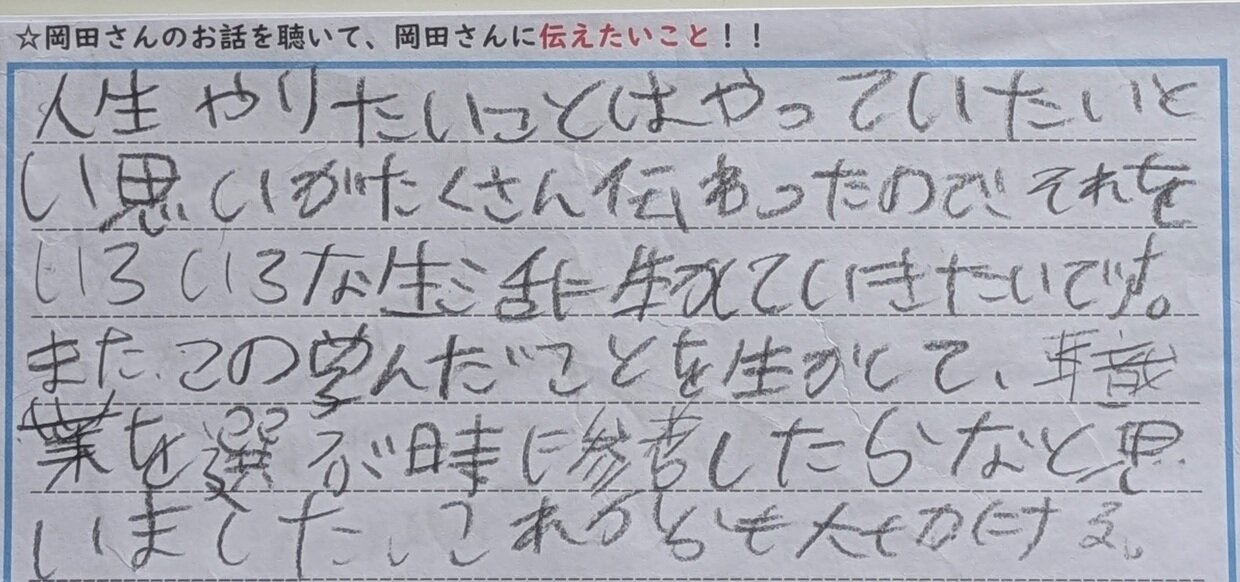 ☆岡田さんのお話を聴いて、岡田さんに伝えたいこと！！
人生やりたいことはやっていたいと
い思いがたくさん伝わったのでそれを
いろいろな生活に生かしていきたいです。
また、この学んだことを生かして、職
業を選ぶ時に参考したらなと思
いました。これからも